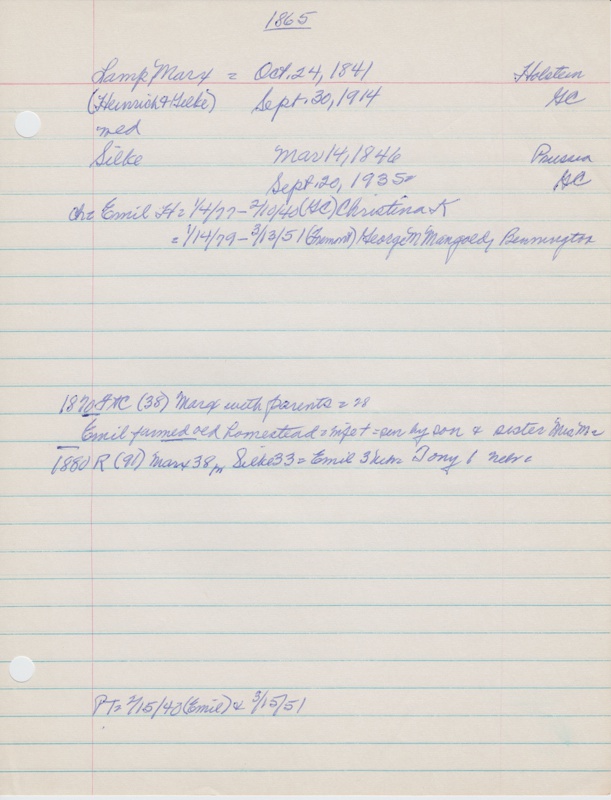 1865
Lamp Marx = Oct. 24, 1841 Holstein
(Heinrich & Silke) Sept. 30, 1914 GC
med
Silke Mar 14, 1846 Prussia
Sept. 20, 1935 GC
ch = Emil H = 1/4/77 - 2/10/40 (GC) Christina K
= 1/14/79 - 3/13/51 (Fremont) George M Mangold, Bennington
1870 (38) Marx with parents = 28
Emil farmed old homestead = sur by son & sister
1880 R (90) Marx 38 Silke 33 = Emil 3 Tony 1 nebr
PT = 2/15/40 (Emil) & 3/15/51